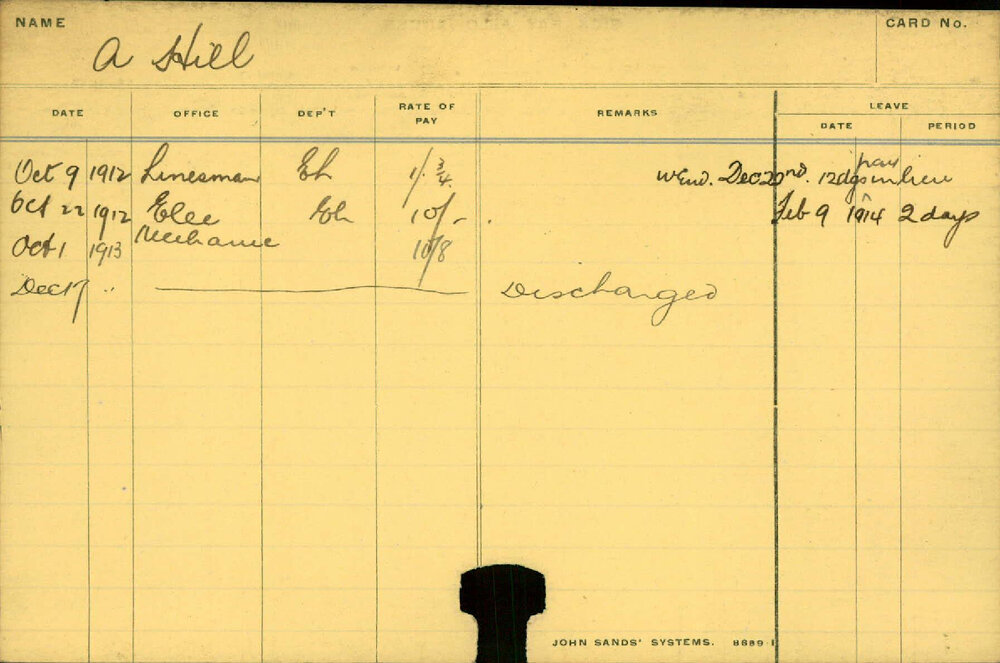 NAME
CARD No.
A Hill
DATE OFFICE DEP'T RATE OF PAY REMARKS LEAVE
DATE PERIOD
Oct 9 1912 Linesman El 1/. 3/4. W End. Dec 22nd. 12 dys pay in lieu
Oct 22 1912 Elec El 10/- . Feb 9 1914 2 days
Mechanic
Oct 1 1913 10/8
Dec 17 .. Discharged
JOHN SANDS' SYSTEMS. 8689·1